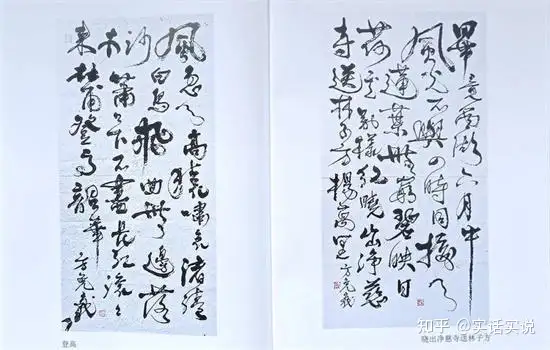 風急天高猿嘯哀渚清
沙白鳥飛回無邊落
木蕭蕭下不盡長江滚滚
来杜甫登高
登高
畢竟西湖六月中
風光不與四時同接天
蓮葉無窮碧映日
荷花别樣紅曉出净慈
寺送林子方楊萬里
晓出净慈寺送林子方
知乎 @实话实说